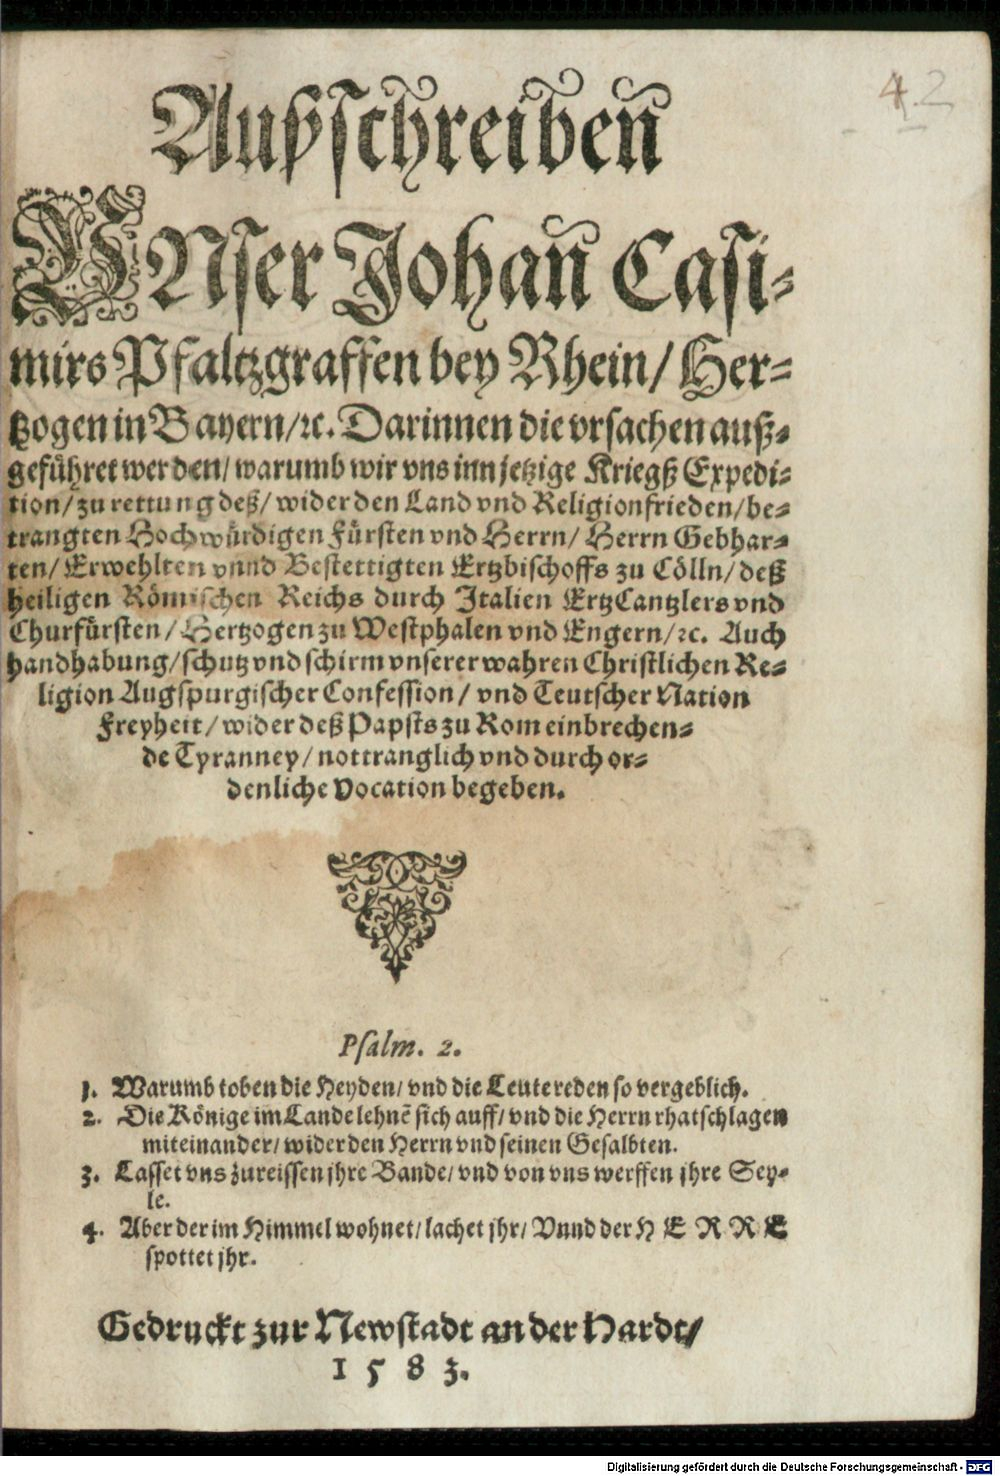 42
Außschreiben
VNser Johañ Casi-
mirs Pfaltzgraffen bey Rhein/ Her-
tzogen in Bayern/ ꝛc. Darinnen die vrsachen auß-
geführet werden/ warumb wir vns inn jetzige Kriegß Expedi-
tion/ zu rettung deß/ wider den Land vnd Religionfrieden/ be-
trangten Hochwürdigen Fürsten vnd Herrn/ Herrn Gebhar-
ten/ Erwehlten vnnd Bestettigten Ertzbischoffs zu Cölln/ deß
heiligen Römischen Reichs durch Italien ErtzCantzlers vnd
Churfürsten/ Hertzogen zu Westphalen vnd Engern/ ꝛc. Auch
handhabung/ schutz vnd schirm vnserer wahren Christlichen Re-
ligion Augspurgischer Confession/ vnd Teutscher Nation
Freyheit/ wider deß Papsts zu Rom einbrechen-
de Tyranney/ nottranglich vnd durch or-
denliche Vocation begeben.
Psalm. 2.
1. Warumb toben die Heyden/ vnd die Leute reden so vergeblich.
2. Die Könige im Lande lehnẽ sich auff/ vnd die Herrn rhatschlagen
miteinander/ wider den Herrn vnd seinen Gesalbten.
3. Lasset vns zureissen jhre Bande/ vnd von vns werffen jhre Sey-
le.
4. Aber der im Himmel wohnet/ lachet jhr/ Vnnd der HERRE
spottet jhr.
Gedruckt zur Newstadt an der Hardt/
1583.
Digitalisierung gefördert durch die Deutsche Forschungsgemeinschaft - DFG